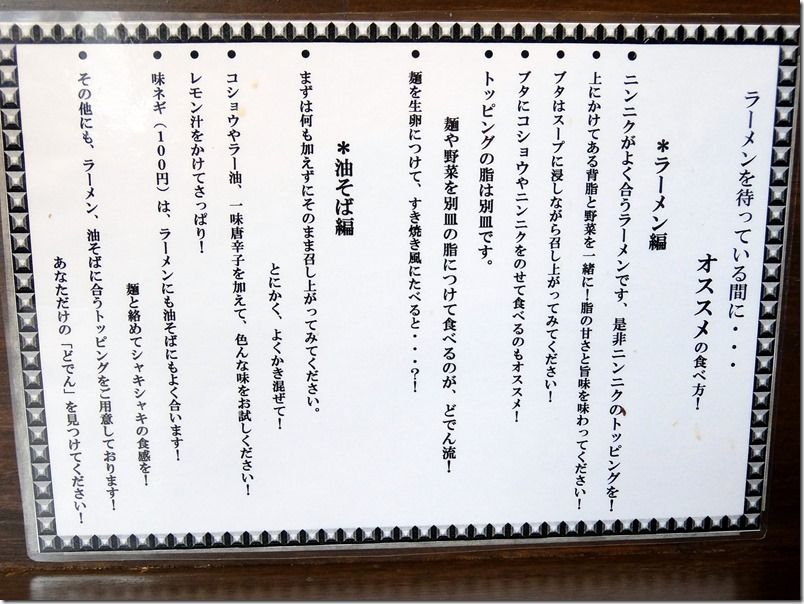 ラーメンを待っている間に・・・
オススメの食べ方！
＊ラーメン編
● ニンニクがよく合うラーメンです、是非ニンニクのトッピングを！
● 上にかけてある背脂と野菜を一緒に！脂の甘さと旨味を味わってください！
● ブタはスープに浸しながら召し上がってみてください！
● ブタにコショウやニンニクをのせて食べるのもオススメ！
● トッピングの脂は別皿です。
麺や野菜を別皿の脂につけて食べるのが、どでん流！
● 麺を生卵につけて、すき焼き風にたべると・・・？！
＊油そば編
● まずは何も加えずにそのまま召し上がってみてください。
とにかく、よくかき混ぜて！
● コショウやラー油、一味唐辛子を加えて、色んな味をお試しください！
● レモン汁をかけてさっぱり！
● 味ネギ（１００円）は、ラーメンにも油そばにもよく合います！
麺と絡めてシャキシャキの食感を！
● その他にも、ラーメン、油そばに合うトッピングをご用意しております！
あなただけの「どでん」を見つけてください！